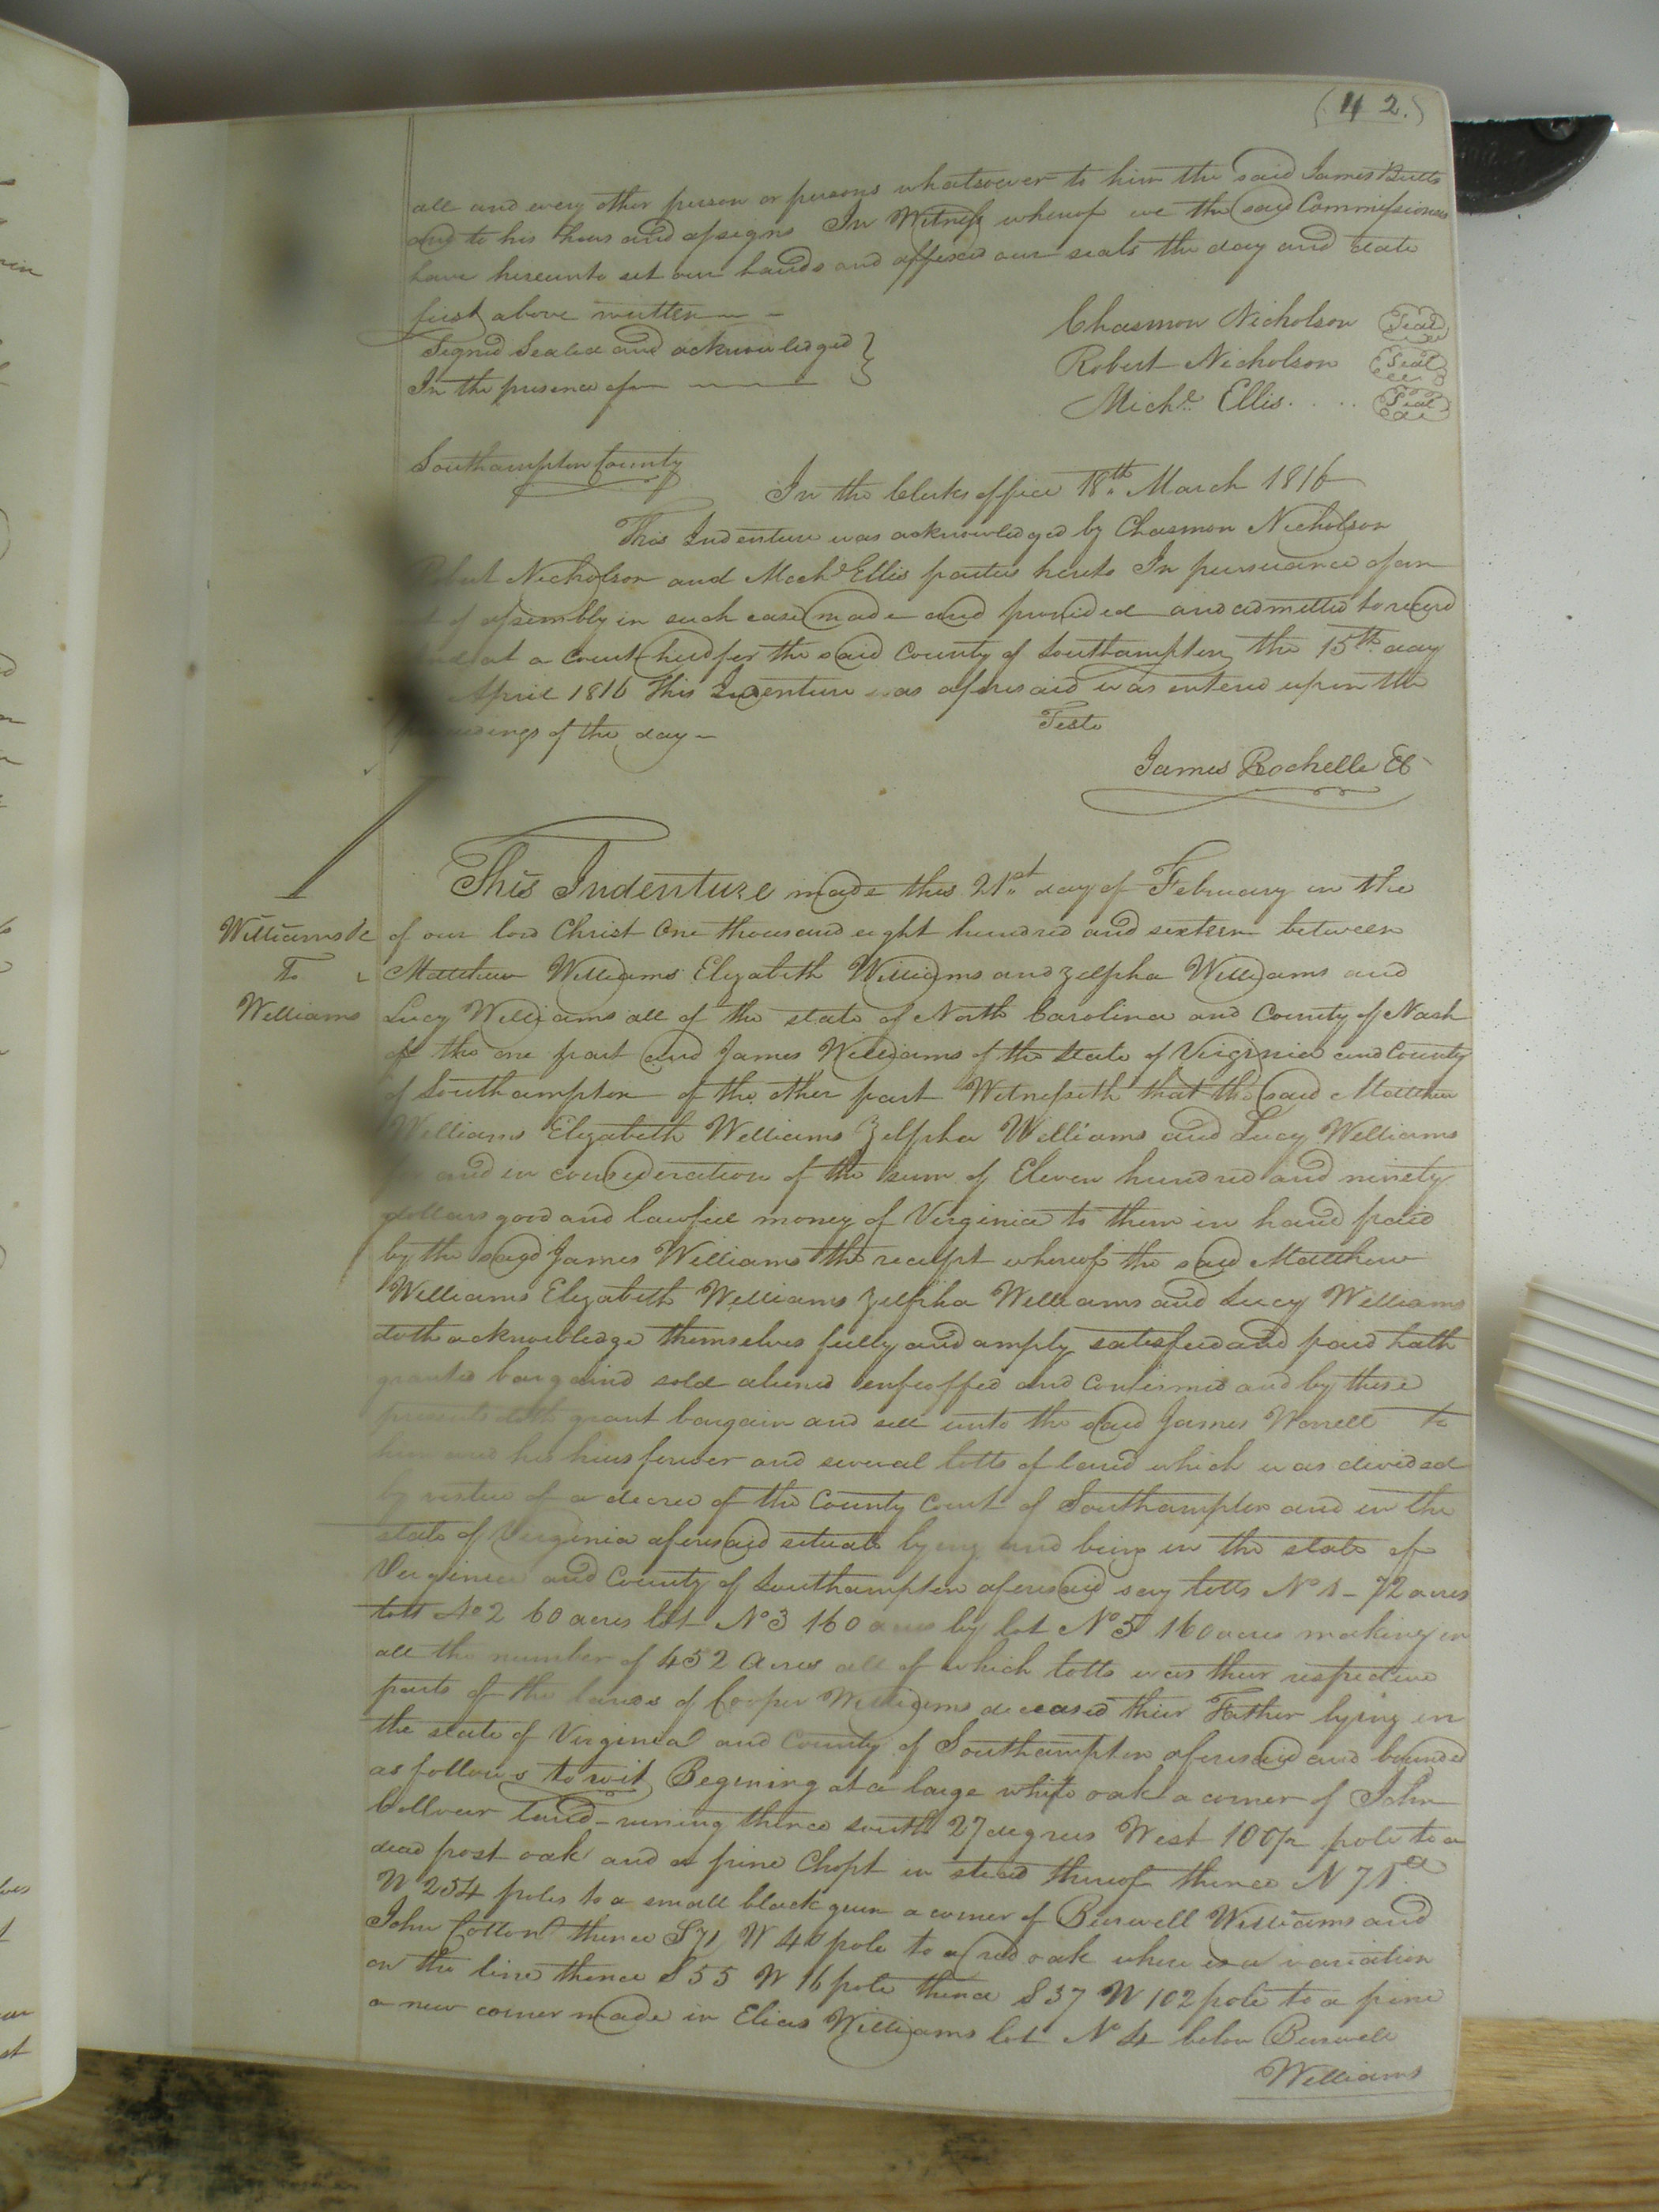 (42.)
all and every other person or persons whatsoever to him the said James Butts
and to his heirs and assigns In Witness whereof we the said Commissioners
have hereunto set our hands and affixed our seals the day and date
first above written
Signed Sealed and acknowledged }
In the presence of
Chasmon Nicholson Seal
Robert Nicholson Seal
Michl. Ellis. Seal
Southampton County
In the Clerks office 18th March 1816
This Indenture was acknowledged by Chasmon Nicholson
Nicholson and Michl Ellis parties hereto In pursuance of an
of assembly in such case made and provided and admitted to record
at a Court held for the said County of Southampton the 15th day
April 1816 This Indenture was aforesaid was entered upon the
of the day
Teste
James Rochelle CC
This Indenture made this 21st day of February in the
Williams &c
To
Williams
of our lord Christ One thousand eight hundred and sixteen between
Matthew Williams Elizabeth Williams and Zelpha Williams and
Lucy Williams all of the state of North Carolina and County of Nash
of the one part and James Williams of the State of Virginia and County
of Southampton of the other part Witnesseth that the said Matthew
Williams Elizabeth Williams Zelpha Williams and Lucy Williams
and in consideration of the sum of Eleven hundred and ninety
dollars good and lawfull money of Virginia to them in hand paid
by the said James Williams the receipt whereof the said Matthew
Williams Elizabeth Williams Zelpha Williams and Lucy Williams
doth acknowledge themselves fully and amply satisfied and paid hath
granted bargaind sold aliened enfeoffed and Confirmed and by these
presents doth grant bargain and sell unto the said James Worrell to
him and his heirs forever and several lotts of land which was divided
by virtue of a decree of the County Court of Southampton and in the
state of Virginia aforesaid situate lying and being in the state of
Virginia and County of Southampton aforesaid say lotts No 1 - 72 acres
lott No 2 60 acres lot No 3 160 acres by lot No 5 160 acres making in
all the number of 452 Acres all of which lotts was their respective
parts of the lands of Cooper Williams deceased their Father lying in
the state of Virginia and County of Southampton aforesaid and bounded
as follows to wit Begining at a large white oak a corner of John
land - runing thence south 27 degrees West 100 pole to a
dead post oak and a pine Chopt in stead thereof thence N 71d
W 254 poles to a small black gum a corner of Burwell Williams and
John Cotton thence S 71 W 40 pole to a red oak where is a variation
on the line thence S 55 W 16 pole thence S 37 W 102 pole to a pine
a new corner made in Elias Williams lot No 4 below Burwell
Williams